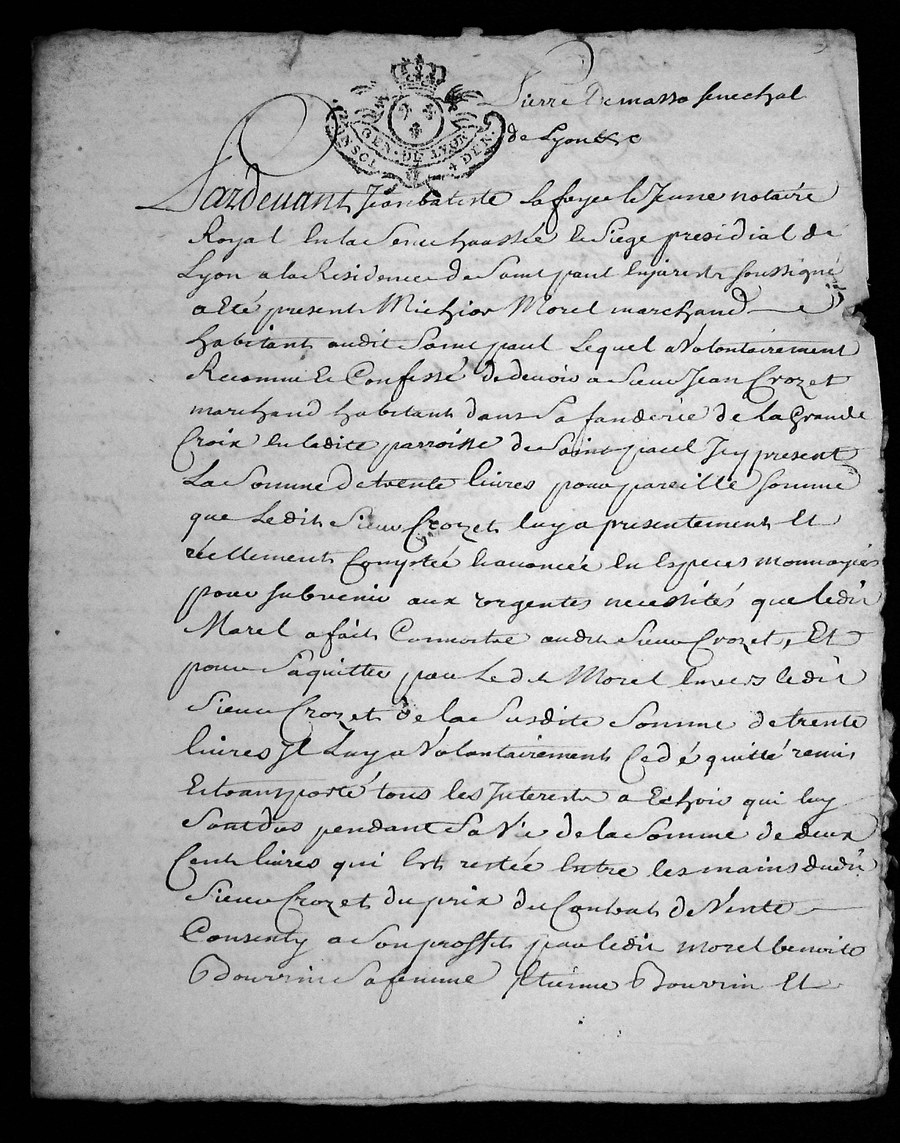 Pierre Demasso senechal
de Lyon &c
GEN. DE LYON
4 DEN
Pardevant Jean batiste Lafaye le Jeune notaire
Royal En la Senechaussée & Siege presidial de
Lyon a la Residence de Saint paul Enjarest soussigné
a Eté present Morel marchand
habitant audit Saint paul Lequel a Volontairement
Reconnu & Confessé de devoir a Sieur Jean Crozet
marchand habitant dans Sa fanderie de la Grande
Croix En ladite parroisse de Saint paul Icy present
La Somme de trente livres pour pareille somme
que Ledit Sieur Crozet luy a presentement Et
réellement Comptée & avancée En Especes monnoyés
pour subvenir aux urgentes necessités que ledit
Morel a fait Connoitre audit Sieur Crozet, Et
pour Saquitter par Ledit Morel Envers ledit
Sieur Crozet de la Susdite Somme de trente
livres Il Luy a Volontairement Cedé quitté remis
Et transporté tous les Interests a Echoir qui luy
Sont dus pendant Sa Vie de la Somme de deux
Cent livres qui Est restée Entre les mains dudit
Sieur Crozet du prix du Contrat de Vente
Consenty a Son proffit par ledit Morel benoite
Bourrin Sa femme Etienne Bourrin Et